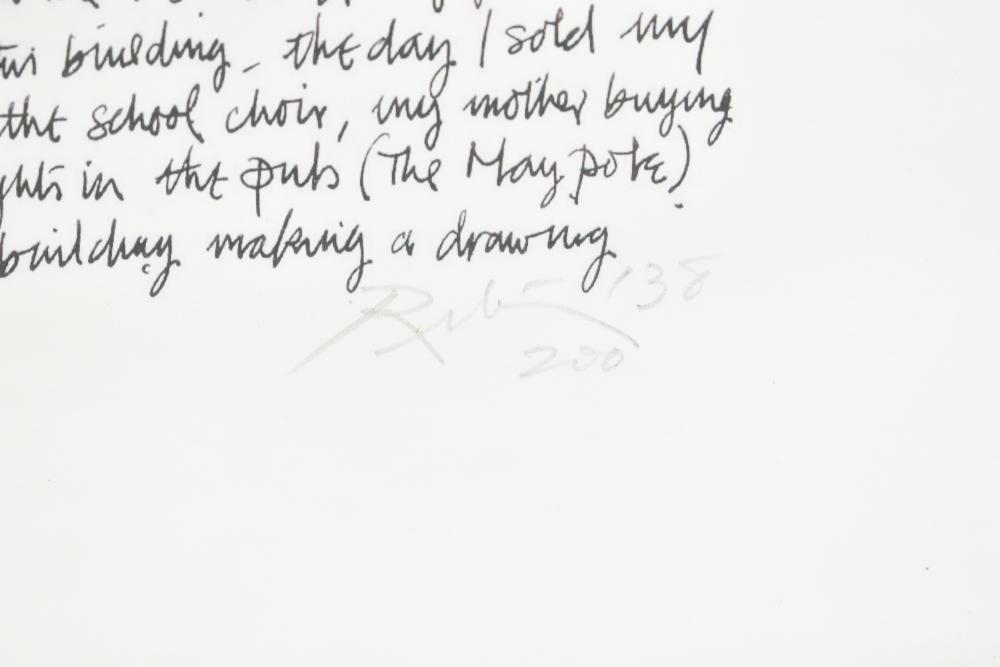 building – the day I sold my
the school choir, my mother buying
in the pub (The May pole).
building making a drawing
138
200